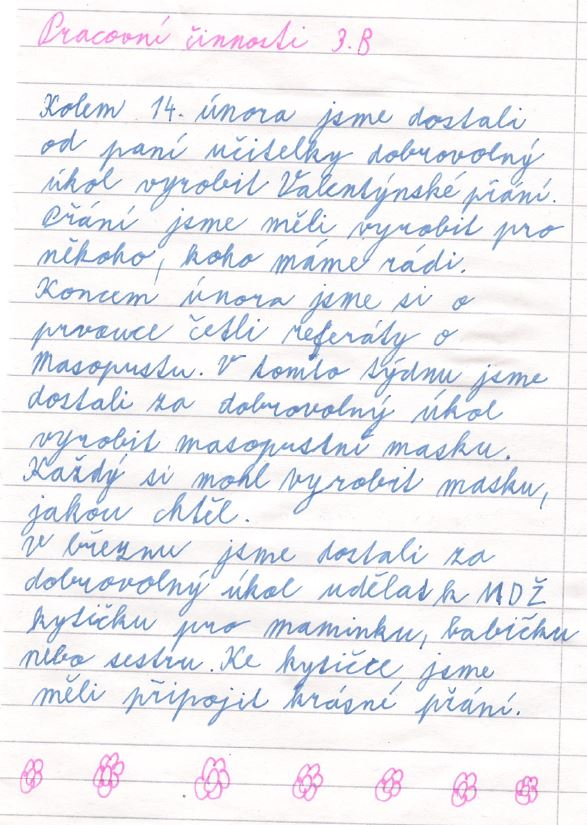 Pracovní činnosti 3.B
Kolem 14. února jsme dostali
od paní učitelky dobrovolný
úkol vyrobit Valentýnské přání.
Přání jsme měli vyrobit pro
někoho, koho máme rádi.
Koncem února jsme si o
prvouce četli referáty o
Masopustu. V tomto týdnu jsme
dostali za dobrovolný úkol
vyrobit masopustní masku.
Každý si mohl vyrobit masku,
jakou chtěl.
V březnu jsme dostali za
dobrovolný úkol udělat k MDŽ
kytičku pro maminku, babičku
nebo sestru. Ke kytičce jsme
měli připojit krásné přání.